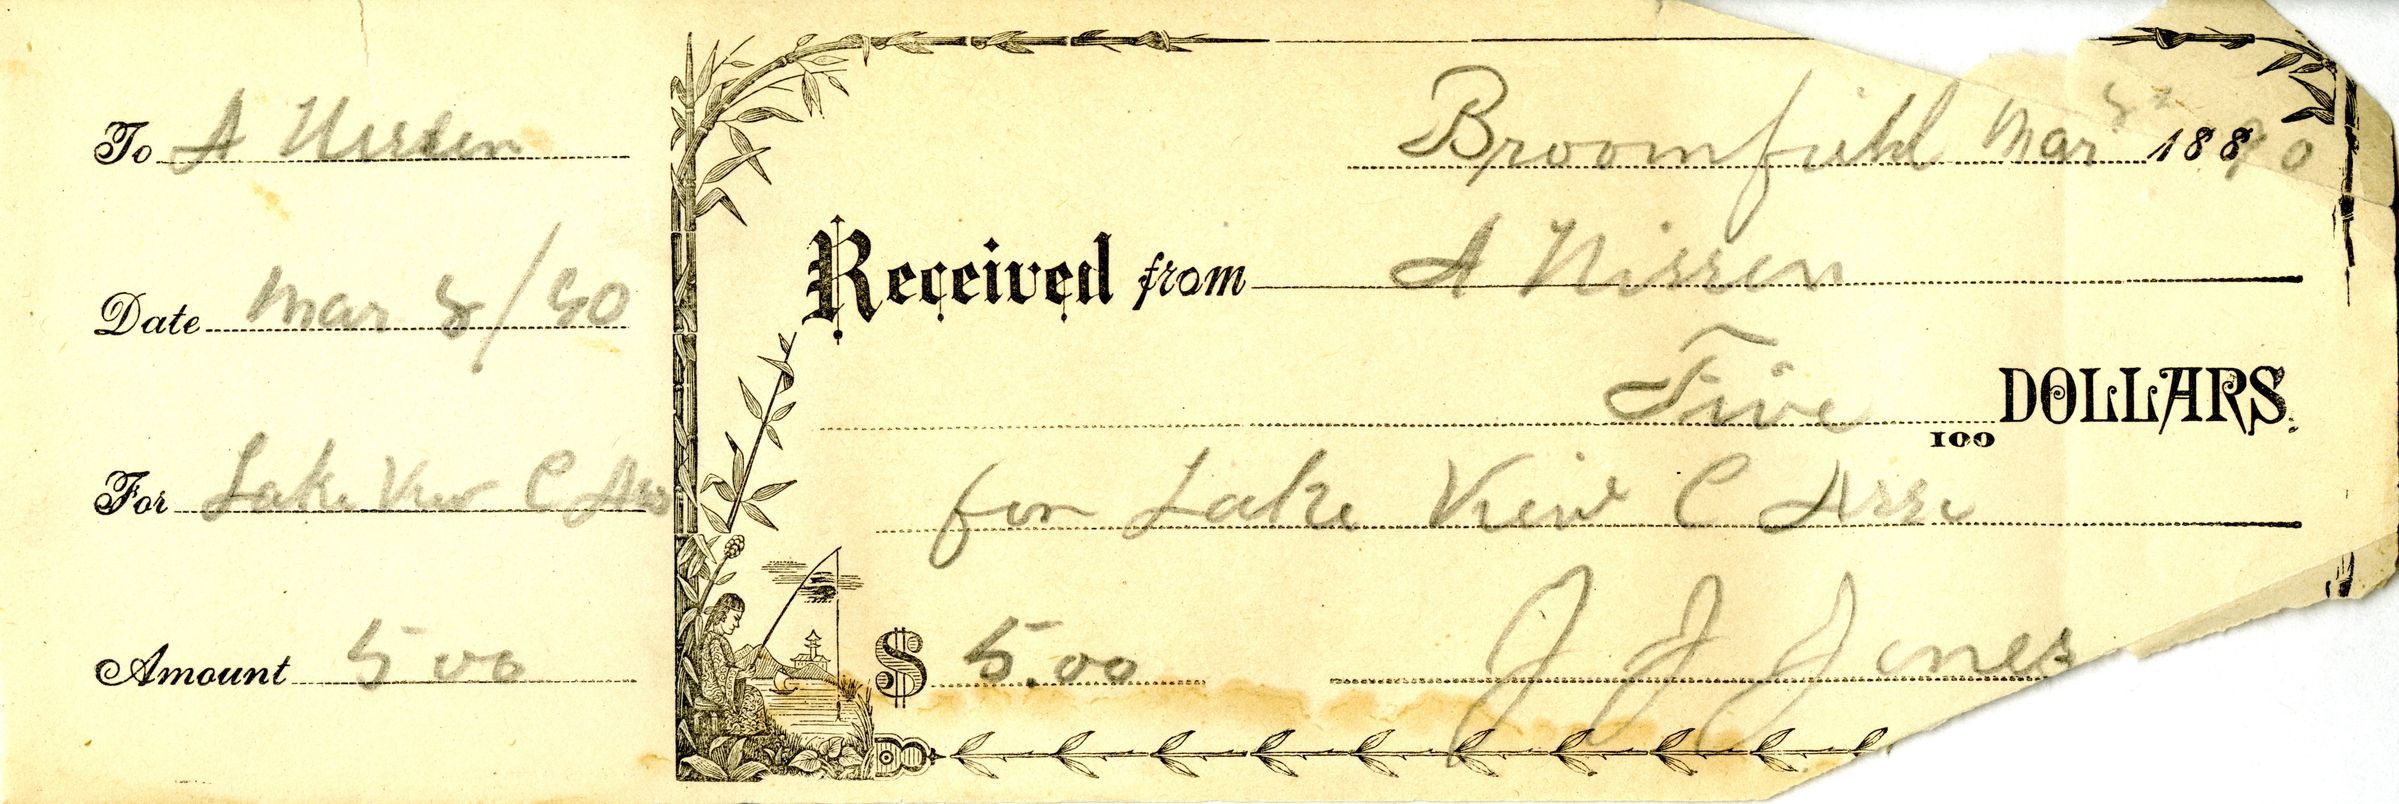 To A Nissen
Date Mar 8/90
For Lake View C Ass
Amount 5 00
Broomfield Mar 8 1890
Received from A Nissen
Five 100 DOLLARS.
for Lake View C Asse
$ 5.00 J J Jones